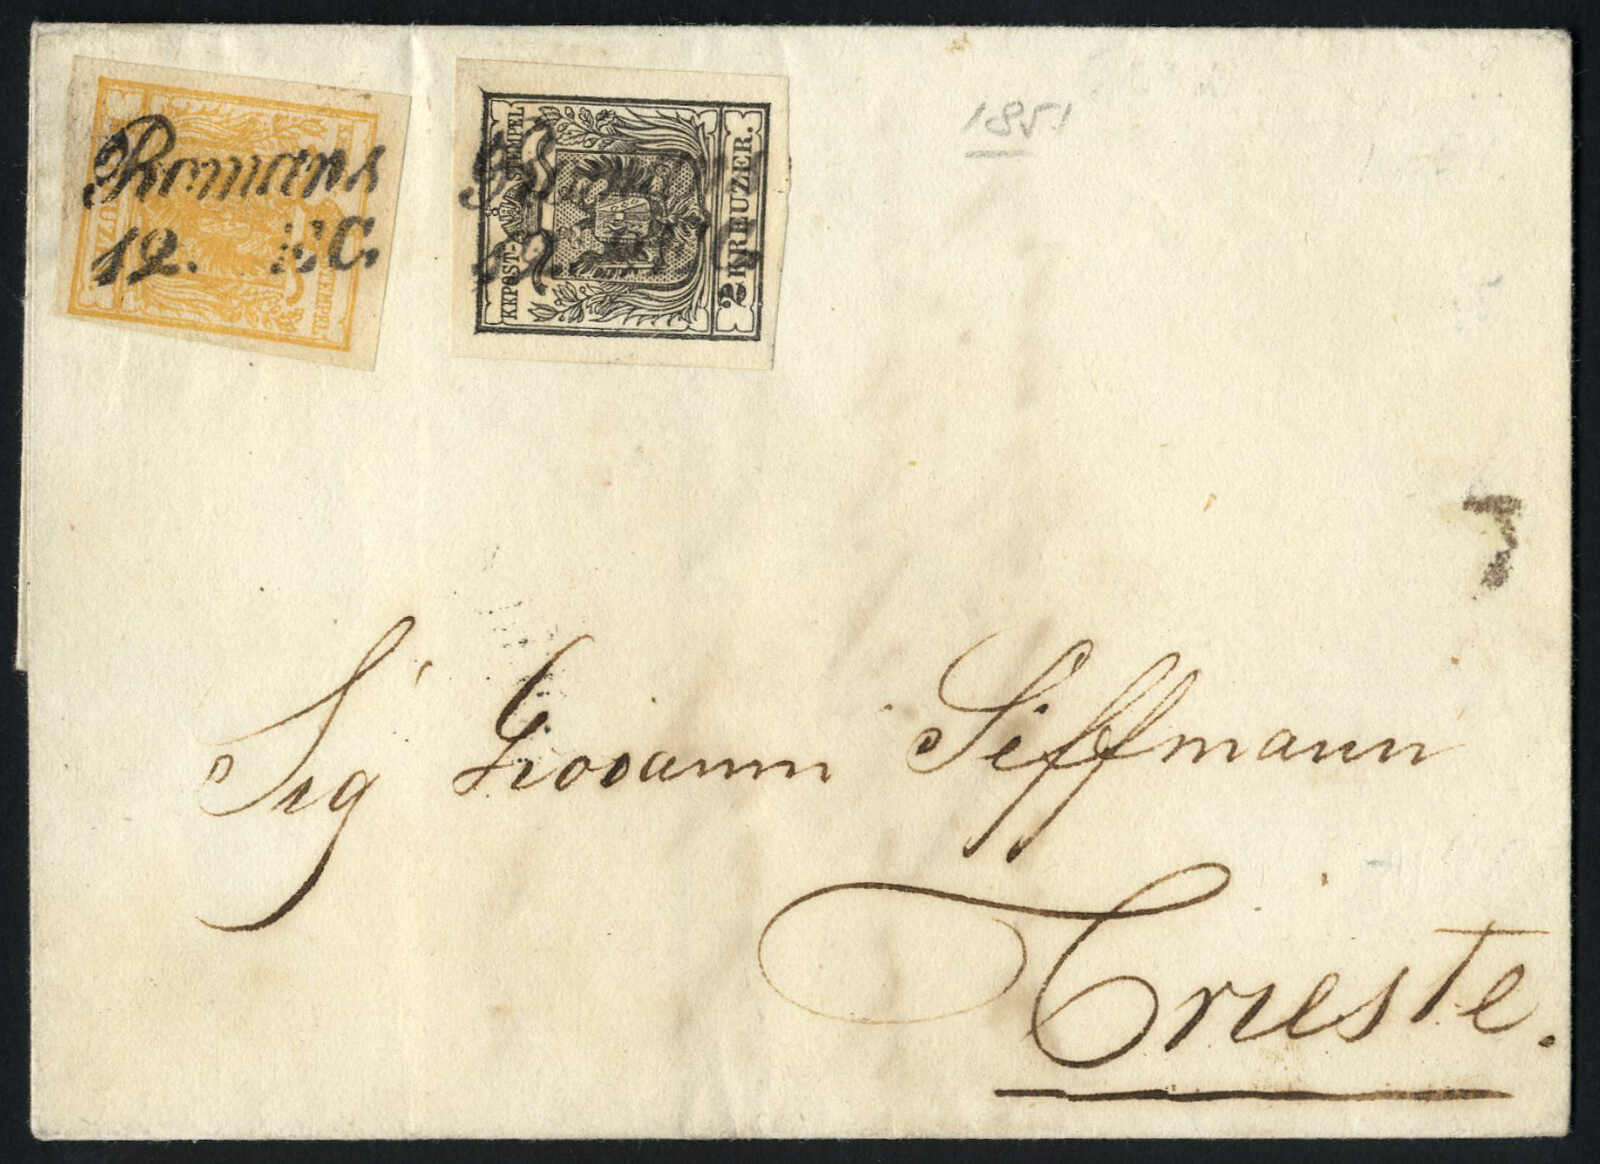 Romans
12. DEC.
KKPOST-STEMPEL
2 KREUZER.
1851
Sigʳ Giovanni Seffmann
Trieste.